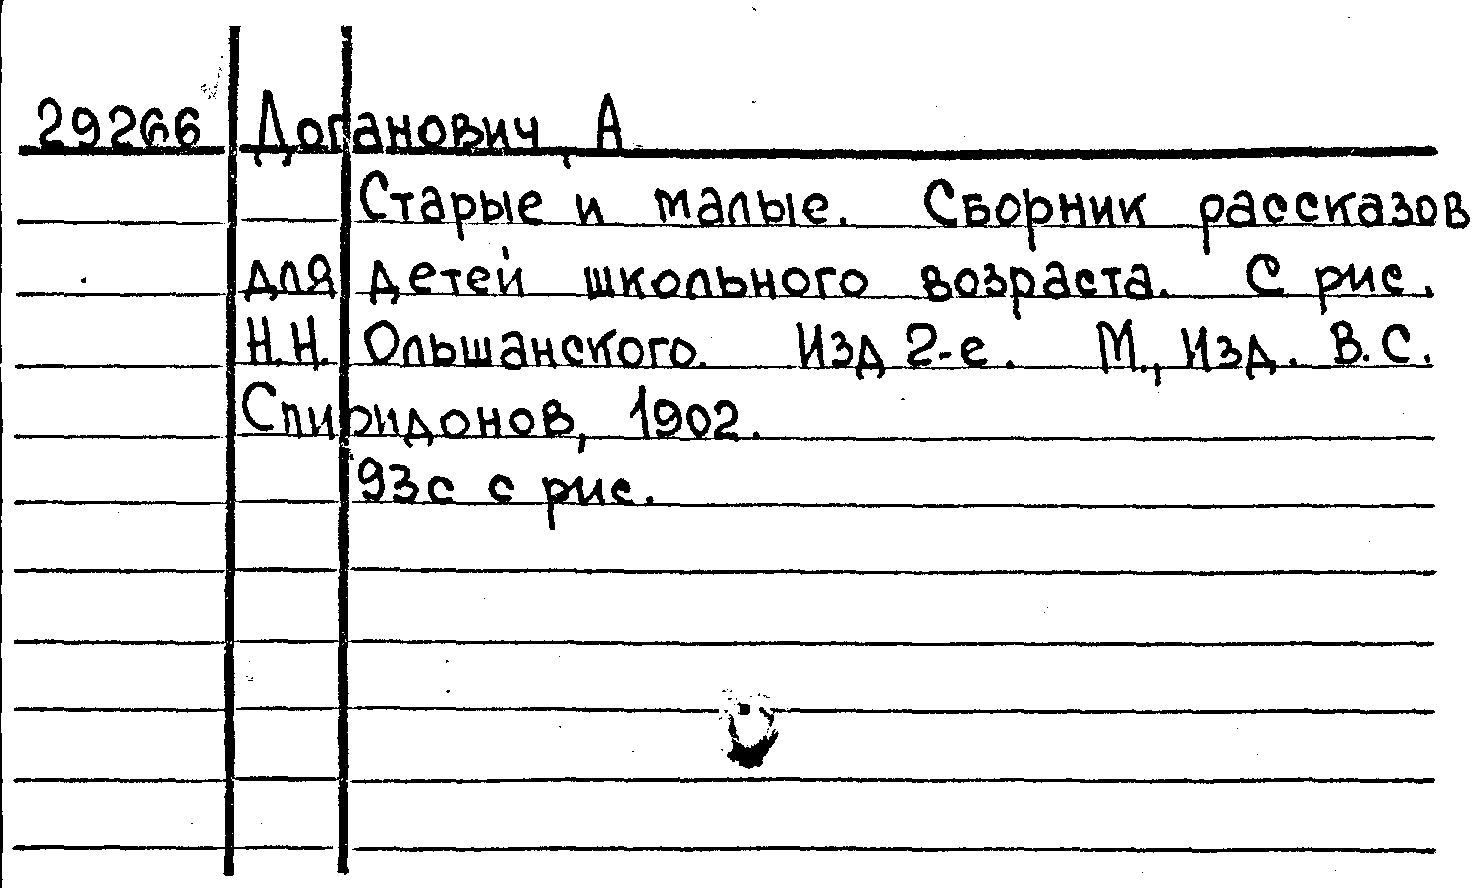 29266 Доганович, А
Старые и малые. Сборник рассказов
для детей школьного возраста. С рис.
Н.Н. Ольшанского. Изд 2-е. М., Изд. В.С.
Спиридонов, 1902.
93с с рис.